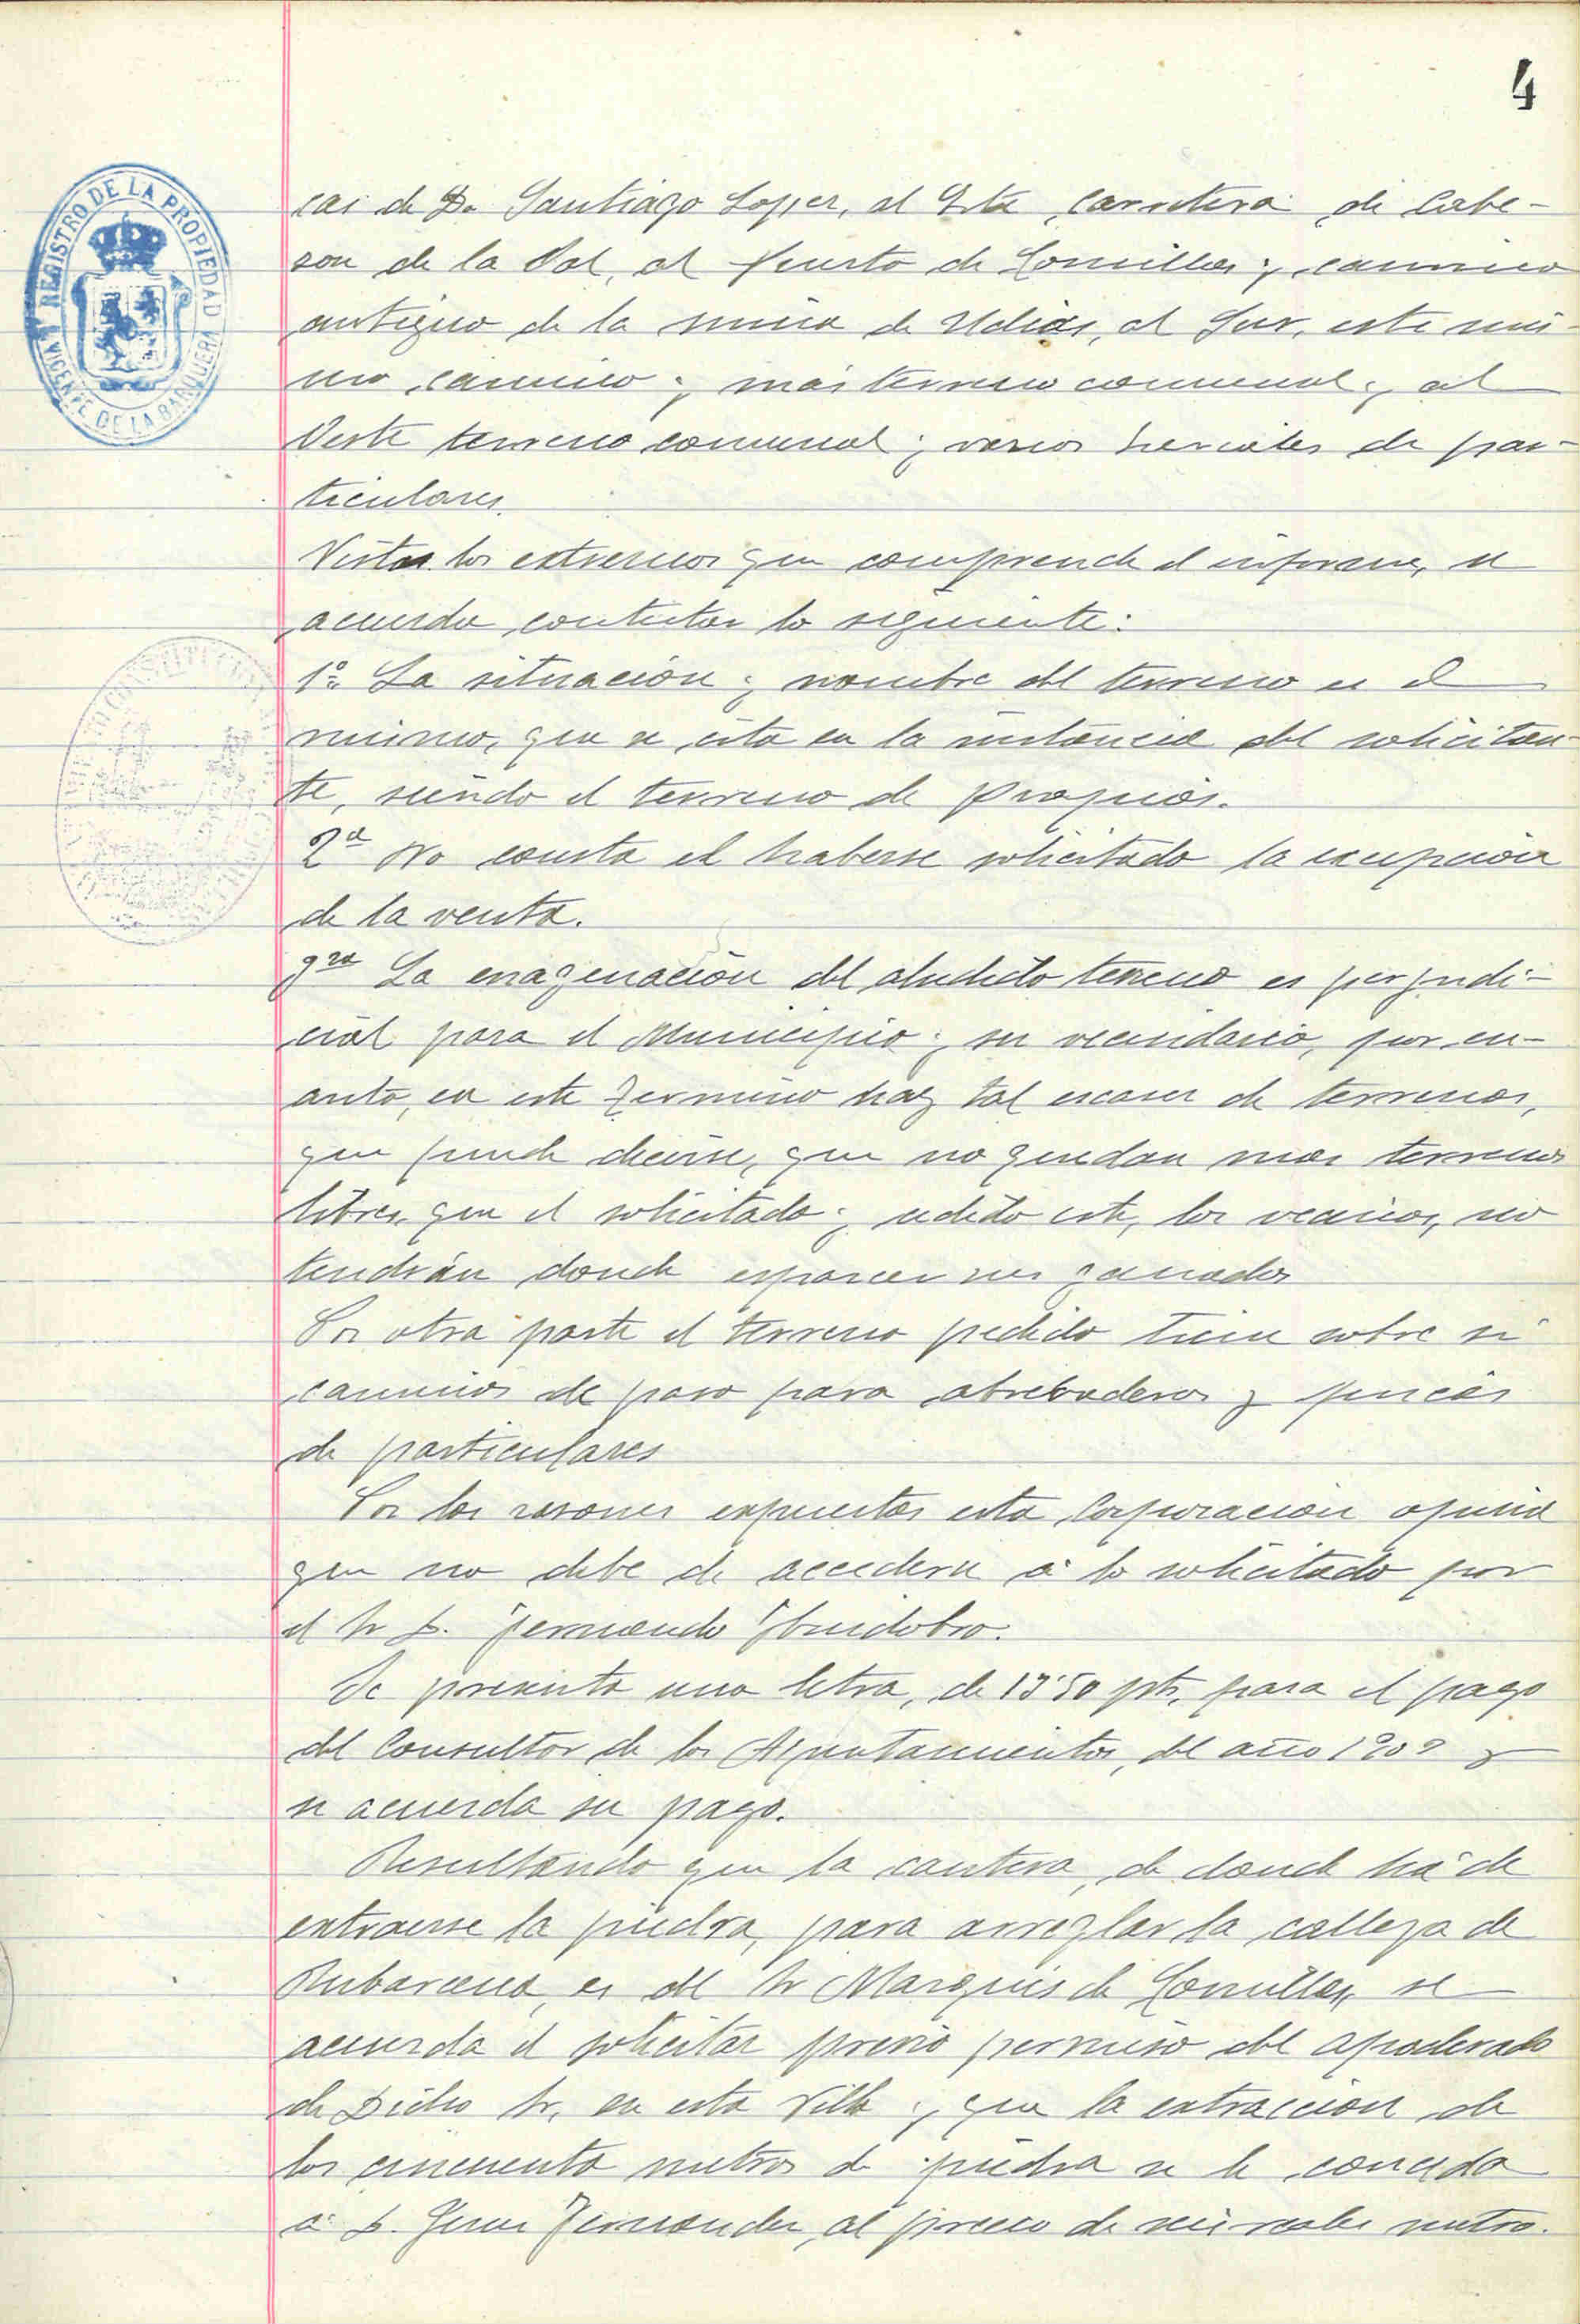 4
cas de D. Santiago Lopez, al Este carretera de Cabe-
zon de la Sal, al puerto de Comillas y camino
antiguo de la mina de Udias, al Sur, este mis-
mo camino y más terreno comunal y al
Oeste terreno comunal y varios heriales de par-
ticulares.
Vistos los extremos que comprende el informe, se
acuerda contestar lo siguiente:
1º La situación y nombre del terreno es el
mismo, que se cita en la instancia del solicitan-
te, siendo el terreno de Propios.
2ª No consta el haberse solicitado la excepción
de la venta.
3ra La enagenación del aludido terreno es perjudi-
cial para el Municipio y su vecindario, por cu-
anto, en este Termino hay tal escasez de terrenos,
que puede decirse, que no quedan mas terrenos
libres, que el solicitado y cedido este, los vecinos, no
tendrán donde esparcer sus ganados
Por otra parte el terreno pedido tiene sobre si
caminos de paso para abrebaderos y fincas
de particulares
Por las razones expuestas esta Corporación opina
que no debe de accederse á lo solicitado por
el Sr D. Fernando Huidobro.
Se presenta una letra, de 13'50 pts, para el pago
del Consultor de los Ayuntamientos, del año 1909 y
se acuerda su pago.
Resultando que la cantera, de donde há de
extraerse la piedra, para arreglar la calleja de
Rubarcena, es del Sr Marqués de Comillas, se
acuerda el solicitar previo permiso del apoderado
de Dicho Sr. en esta Villa y que la extracción de
los cincuenta metros de piedra se le conceda
á D. Juan Fernandez, al precio de seis reales metro.
REGISTRO DE LA PROPIEDAD
VICENTE DE LA BARQUERA